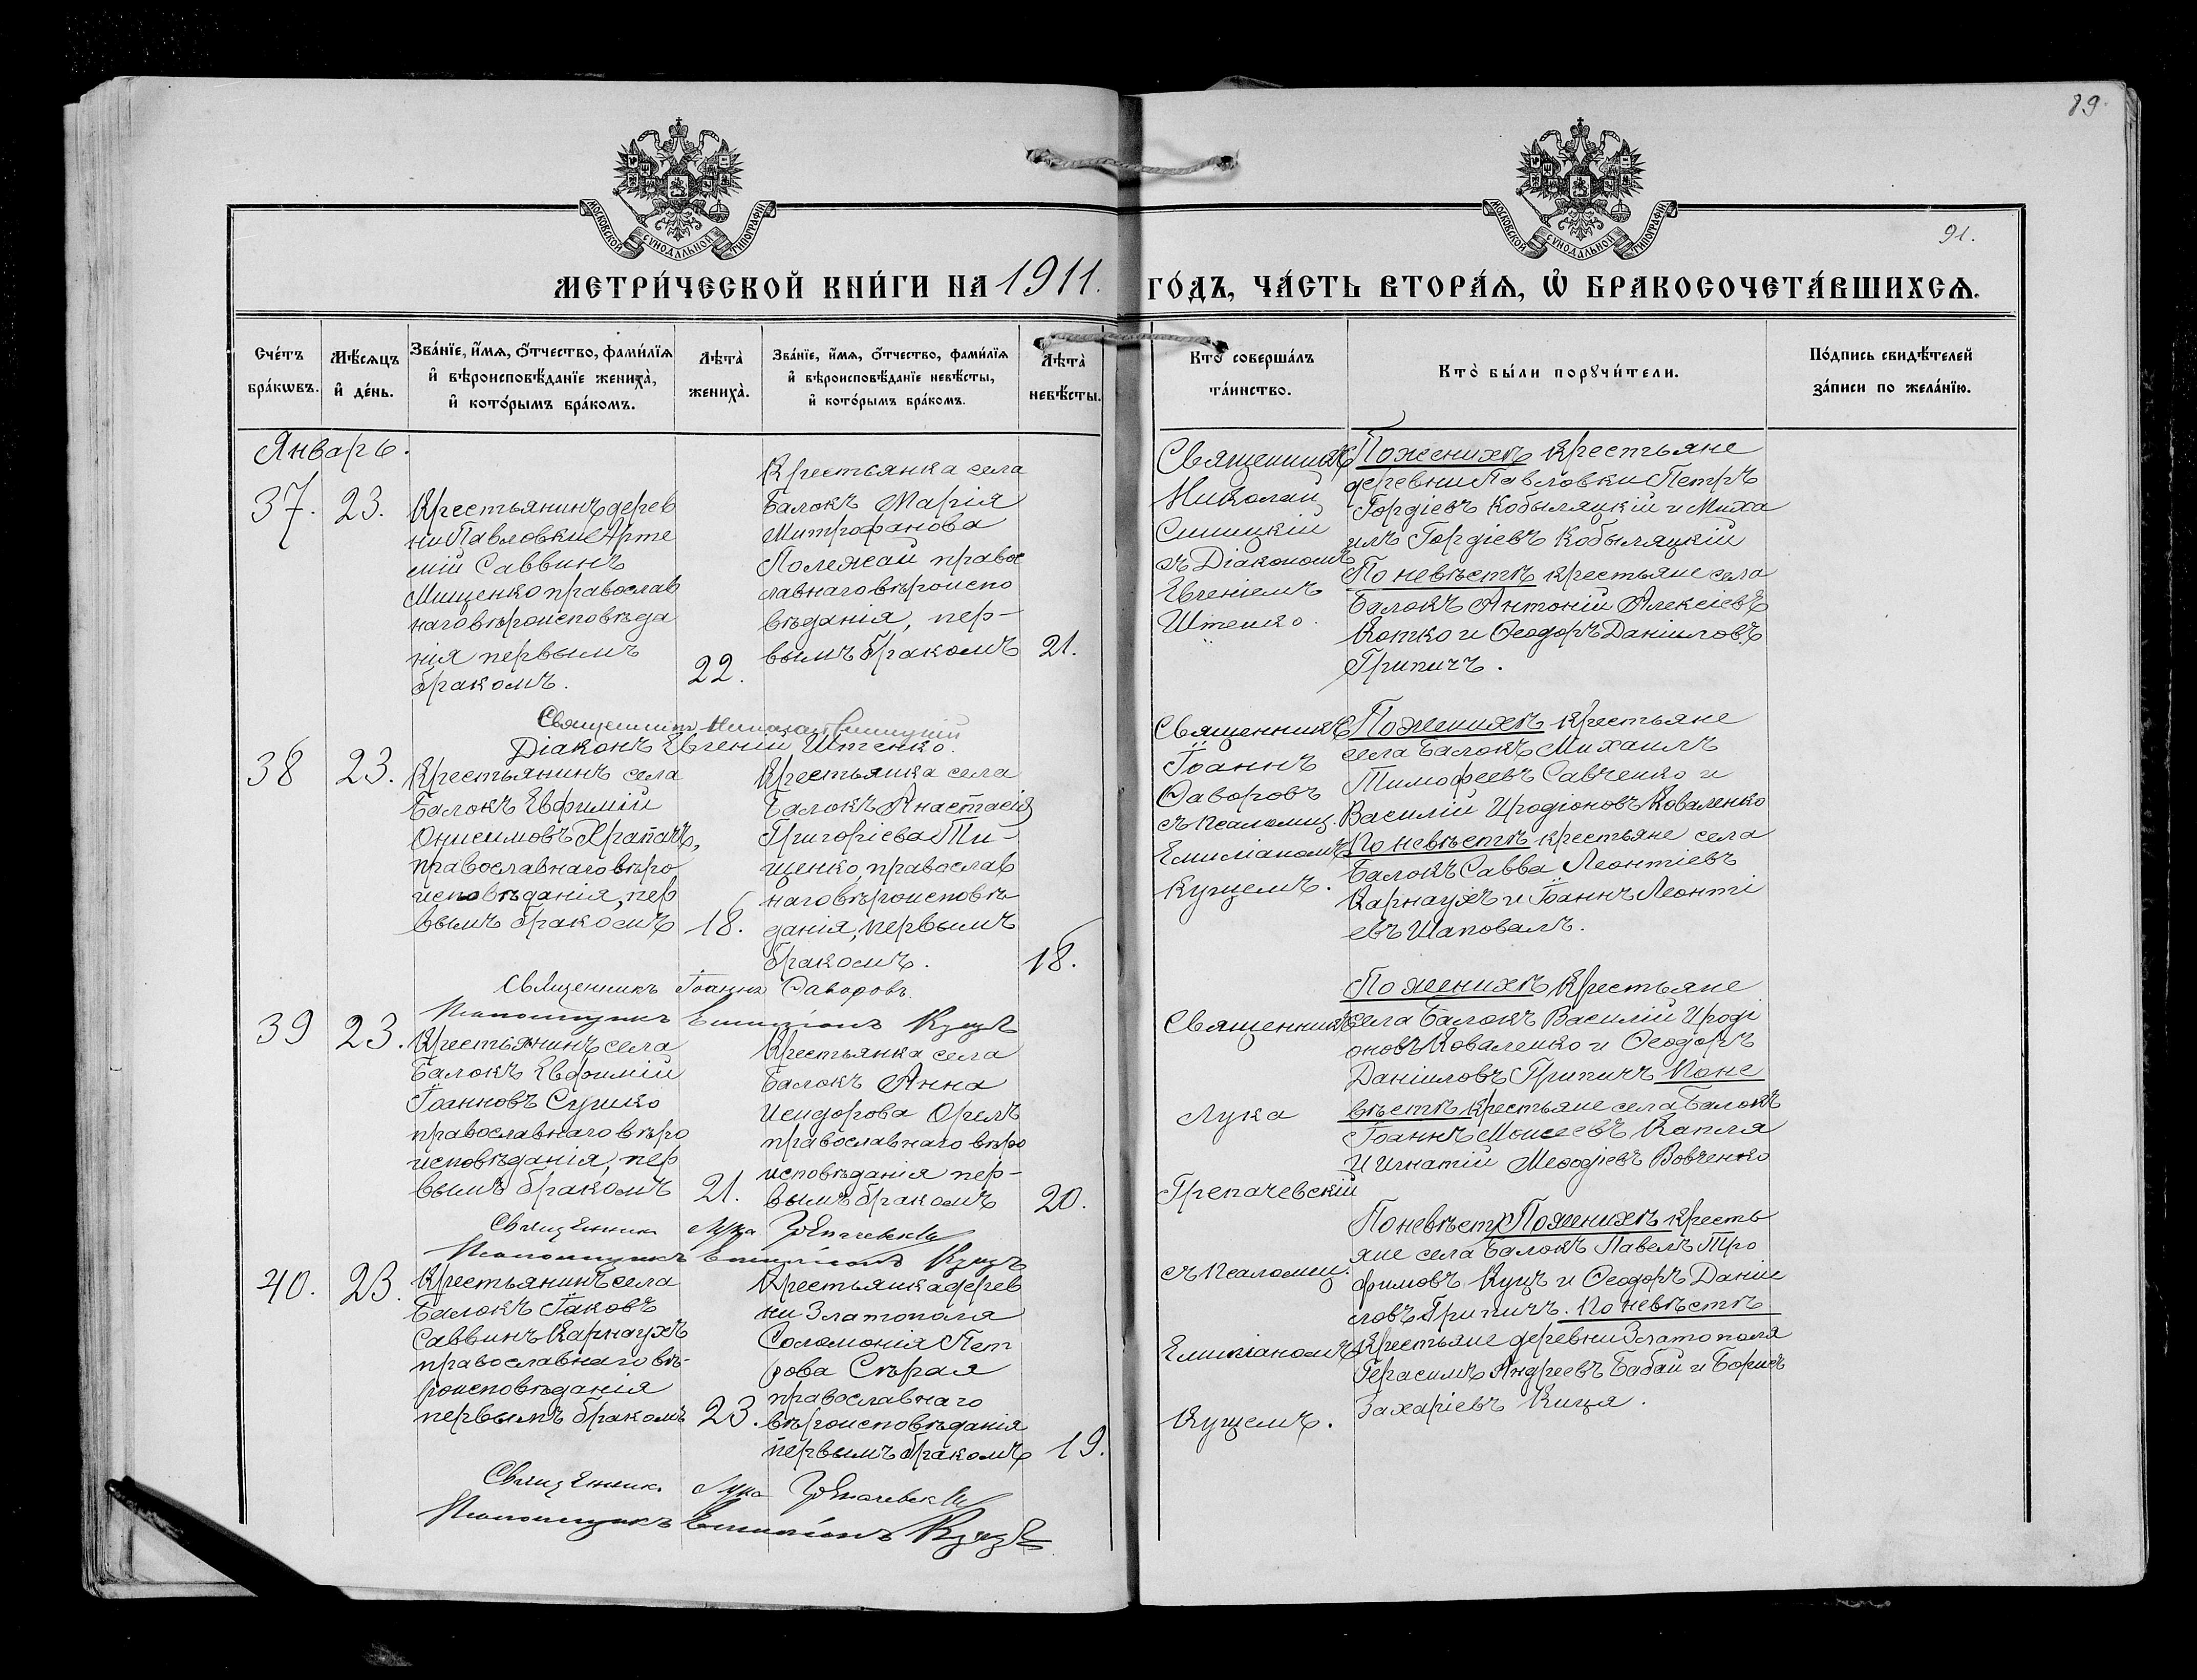 89.
МОСКОВСКОЙ СѴНОДАЛЬНОЙ ТИПОГРАФІИ
МОСКОВСКОЙ СѴНОДАЛЬНОЙ ТИПОГРАФІИ
91.
МЕТРИ́ЧЕСКОЙ КНИ́ГИ НА 1911. ГО́ДЪ, ЧА́СТЬ ВТОРА́Ѧ, Ѽ БРАКОСОЧЕТА́ВШИХСѦ.
Сче́тъ
бра́кѡвъ.
Мѣ́сѧцъ
и҆ де́нь.
Зва́нїе, и҆́мѧ, ѻ҆́тчество, фами́лїѧ
и҆ вѣроисповѣ́данїе жениха̀,
и҆ кото́рымъ бра́комъ.
Лѣ́та̀
жениха̀.
Зва́нїе, и҆́мѧ, ѻ҆́тчество, фами́лїѧ
и҆ вѣроисповѣ́данїе невѣ́сты,
и҆ кото́рымъ бра́комъ.
Лѣ́та̀
невѣ́сты.
Кто̀ соверша́лъ
та́инство.
Кто̀ бы́ли порꙋчи́тели.
По́дпись свидѣ́телей
за́писи по жела́нїю.
Январь.
37.
23.
Крестьянинъ дерев
ни Павловки Арте
мій Саввинъ
Мищенко православ
наго вѣроисповѣда
нія первымъ
бракомъ.
22.
Крестьянка села
Балокъ Марія
Митрофанова
Полежай право
славнаго вѣроиспо
вѣданія, пер-
вымъ бракомъ
21.
Священникъ
Николай
Синицкій
съ Діакономъ
Евгеніемъ
Штенко.
По женихѣ крестьяне
деревни Павловки Петръ
Гордіевъ Кобыляцкій и Миха
илъ Гордіевъ Кобыляцкій
По невѣстѣ крестьяне села
Балокъ Антоній Алексіевъ
Копко и Ѳеодоръ Даніиловъ
Грипичъ.
Священникъ Николай Синицкій
Діаконъ Евгеній Штенко.
38
23.
Крестьянинъ села
Балокъ Евфимій
Онисимовъ Храпачъ,
православнаго вѣро
исповѣданія, пер
вымъ бракомъ
18.
Крестьянка села
Балокъ Анастасія
Григоріева Ти-
щенко, православ
наго вѣроисповѣ
данія, первымъ
бракомъ.
18.
Священникъ
Іоаннъ
Ѳаворовъ
съ псаломщ.
Емиліаномъ
Куцемъ.
По женихѣ крестьяне
села Балокъ Михаилъ
Тимофеевъ Савченко и
Василій Иродіоновъ Коваленко
По невѣстѣ крестьяне села
Балокъ Савва Леонтіевъ
Карнаухъ и Іоаннъ Леонті
евъ Шаповалъ.
Священникъ Іоаннъ Ѳаворовъ.
Псаломщикъ Емиліанъ Куцъ
39
23.
Крестьянинъ села
Балокъ Евфимій
Іоанновъ Сушко
православнаго вѣро
исповѣданія, пер
вымъ бракомъ
21.
Крестьянка села
Балокъ Анна
Исидорова Орелъ
православнаго вѣро
исповѣданія пер-
вымъ бракомъ
20.
Священникъ
Лука
Грепачевскій
съ псаломщ.
Емиліаномъ
Куцемъ.
По женихѣ крестьяне
села Балокъ Василій Ироді
оновъ Коваленко и Ѳеодоръ
Даніиловъ Грипичъ По не
вѣстѣ крестьяне села Балокъ
Іоаннъ Моисеевъ Капля
и Игнатій Меѳодіевъ Вовченко
Священникъ Лука Грепачевскій
Псаломщикъ Емиліанъ Куцъ
40.
23.
Крестьянинъ села
Балокъ Іаковъ
Саввинъ Карнаухъ
православнаго вѣ-
роисповѣданія
первымъ бракомъ
23.
Крестьянка дерев
ни Златополя
Соломонія Пет
рова Сѣрая
православнаго
вѣроисповѣданія
первымъ бракомъ
19.
По невѣст По женихѣ кресть
яне села Балокъ Павелъ Тро
фимовъ Куцъ и Ѳеодоръ Даніи
ловъ Грипичъ. По невѣстѣ
крестьяне деревни Златополя
Герасимъ Андреевъ Бабай и Борисъ
Захаріевъ Киця.
Священникъ Лука Грепачевскій
Псаломщикъ Емиліанъ Куцъ